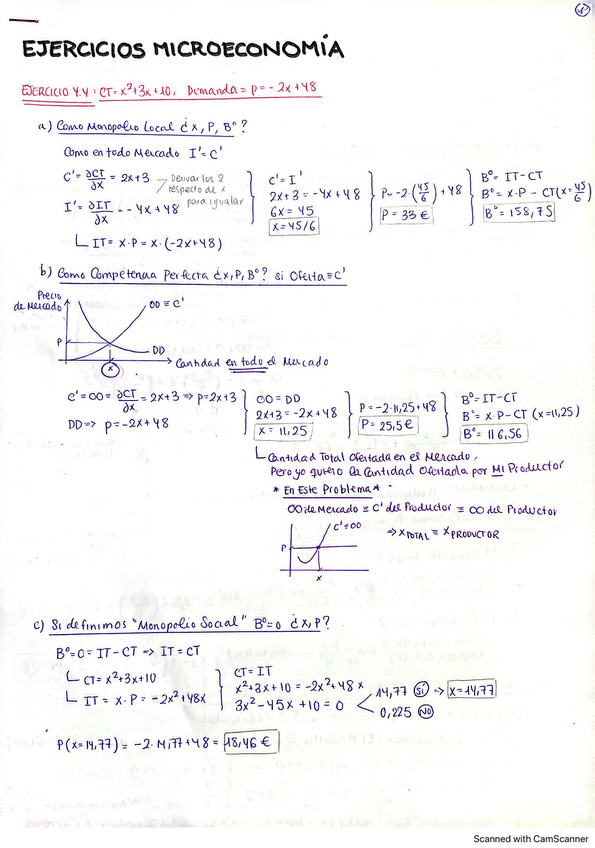 EJERCICIOS MICROECONOMÍA
EJERCICIO 4.4: CT= x²+3x+10, Demanda = p = -2x+48
a) Como Monopolio Local ¿x, P, Bº?
Como en todo Mercado I' = C'
C' = ∂CT/∂x = 2x+3
I' = ∂IT/∂x = -4x+48
Derivar los 2
respecto de x
para igualar
IT = x·P = x·(-2x+48)
C' = I'
2x+3 = -4x+48
6x = 45
x = 45/6
P = -2·(45/6) + 48
P = 33 €
Bº = IT-CT
Bº = x·P - CT(x=45/6)
Bº = 158,75
b) Como Competencia Perfecta ¿x, P, Bº? si Oferta ≡ C'
Precio
de Mercado
OO ≡ C'
P
DD
x
Cantidad en todo el Mercado
C' = OO = ∂CT/∂x = 2x+3 => p=2x+3
DD => p = -2x+48
OO = DD
2x+3 = -2x+48
x = 11,25
P = -2·11,25+48
P = 25,5 €
Bº = IT-CT
Bº = x·P-CT (x=11,25)
Bº = 116,56
Cantidad Total Ofertada en el Mercado,
Pero yo quiero la Cantidad Ofertada por Mi Productor
* En Este Problema *
OO de Mercado ≡ C' del Productor ≡ OO del Productor
C'=OO
P
x
=> X TOTAL = X PRODUCTOR
c) Si definimos "Monopolio Social" Bº=0 ¿x, P?
Bº=0 = IT-CT => IT = CT
CT = x²+3x+10
IT = x·P = -2x²+48x
CT = IT
x²+3x+10 = -2x²+48x
3x²-45x+10 = 0
14,77 SÍ => x=14,77
0,225 NO
P(x=14,77) = -2·14,77+48 = 18,46 €
Scanned with CamScanner